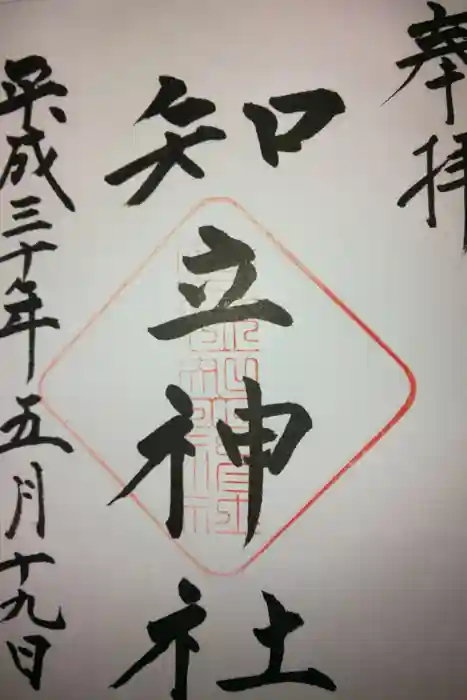 奉拝
知立神社
平成三十年五月十九日